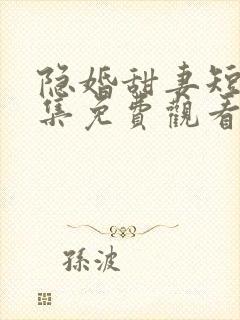 隐婚甜妻短
集免費觀看
孫波